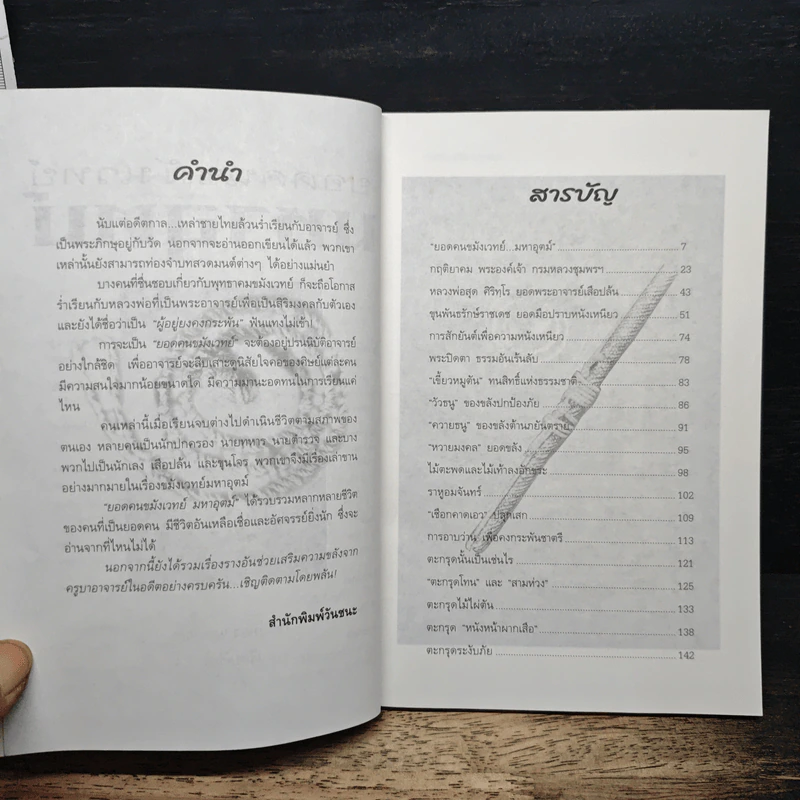 คำนำ
นับแต่อดีตกาล...เหล่าชายไทยล้วนร่ำเรียนกับอาจารย์ ซึ่ง
เป็นพระภิกษุอยู่กับวัด นอกจากจะอ่านออกเขียนได้แล้ว พวกเขา
เหล่านั้นยังสามารถท่องจำบทสวดมนต์ต่างๆ ได้อย่างแม่นยำ
บางคนที่ชื่นชอบเกี่ยวกับพุทธาคมขมังเวทย์ ก็จะถือโอกาส
ร่ำเรียนกับหลวงพ่อที่เป็นพระอาจารย์เพื่อเป็นสิริมงคลกับตัวเอง
และยังได้ชื่อว่าเป็น "ผู้อยู่ยงคงกระพัน" ฟันแทงไม่เข้า!
การจะเป็น "ยอดคนขมังเวทย์" จะต้องอยู่ปรนนิบัติอาจารย์
อย่างใกล้ชิด เพื่ออาจารย์จะสืบเสาะดูนิสัยใจคอของศิษย์แต่ละคน
มีความสนใจมากน้อยขนาดใด มีความมานะอดทนในการเรียนแค่
ไหน
คนเหล่านี้เมื่อเรียนจบต่างไปดำเนินชีวิตตามสภาพของ
ตนเอง หลายคนเป็นนักปกครอง นายทหาร นายตำรวจ และบาง
พวกไปเป็นนักเลง เสือปล้น และขุนโจร พวกเขาจึงมีเรื่องเล่าขาน
อย่างมากมายในเรื่องขมังเวทย์มหาอุตม์
"ยอดคนขมังเวทย์ มหาอุตม์" ได้รวบรวมหลากหลายชีวิต
ของคนที่เป็นยอดคน มีชีวิตอันเหลือเชื่อและอัศจรรย์ยิ่งนัก ซึ่งจะ
อ่านจากที่ไหนไม่ได้
นอกจากนี้ยังได้รวมเรื่องรางอันช่วยเสริมความขลังจาก
ครูบาอาจารย์ในอดีตอย่างครบครัน...เชิญติดตามโดยพลัน!
สำนักพิมพ์วันชนะ
สารบัญ
"ยอดคนขมังเวทย์...มหาอุตม์" 7
กฤติยาคม พระองค์เจ้า กรมหลวงชุมพรฯ 23
หลวงพ่อสุด ศิริทฺโร ยอดพระอาจารย์เสือปล้น 43
ขุนพันธรักษ์ราชเดช ยอดมือปราบหนังเหนียว 51
การสักยันต์เพื่อความหนังเหนียว 74
พระปิดตา ธรรมอันเร้นลับ 78
"เขี้ยวหมูตัน" ทนสิทธิ์แห่งธรรมชาติ 83
"วัวธนู" ของขลังปกป้องภัย 86
"ควายธนู" ของขลังต้านภยันตราย 91
"หวายมงคล" ยอดขลัง 95
ไม้ตะพดและไม้เท้าลงอักขระ 98
ราหูอมจันทร์ 102
"เชือกคาดเอว" ปลุกเสก 109
การอาบว่าน เพื่อคงกระพันชาตรี 113
ตะกรุดนั้นเป็นเช่นไร 121
"ตะกรุดโทน" และ "สามห่วง" 125
ตะกรุดไม้ไผ่ตัน 133
ตะกรุด "หนังหน้าผากเสือ" 138
ตะกรุดระงับภัย 142